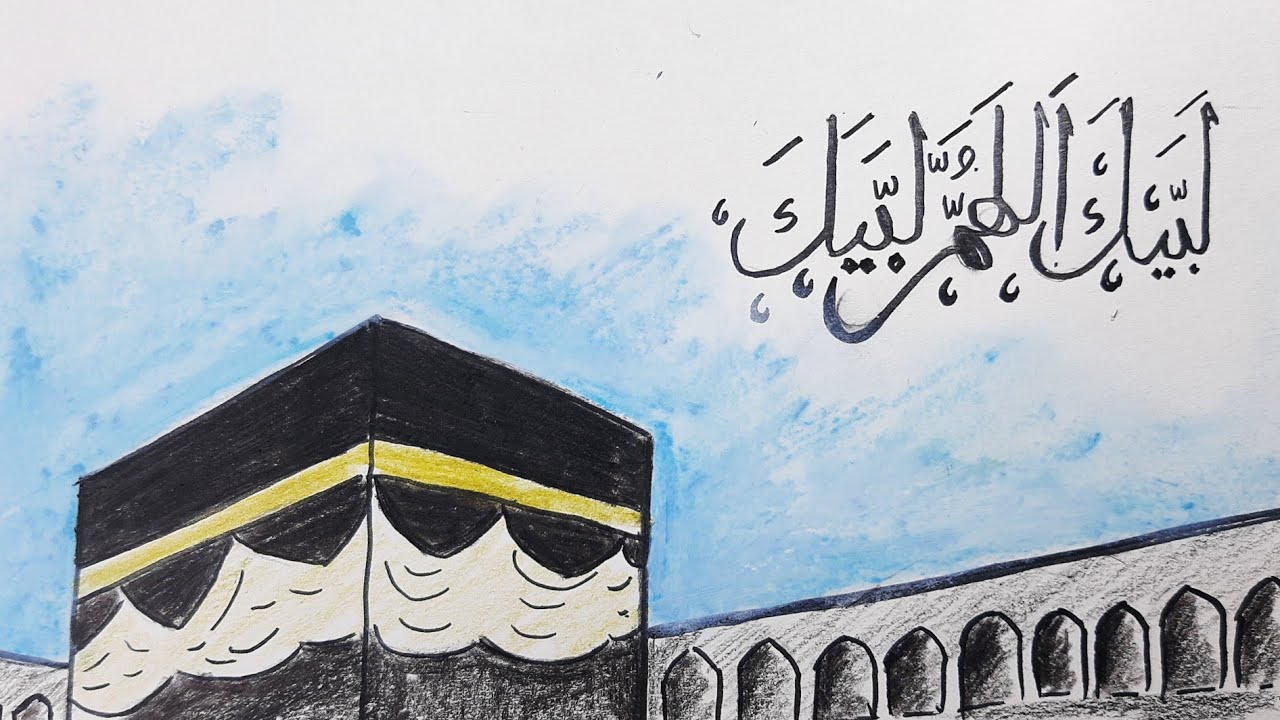 لَبَّيْكَ اَللّٰهُمَّ لَبَّيْكَ